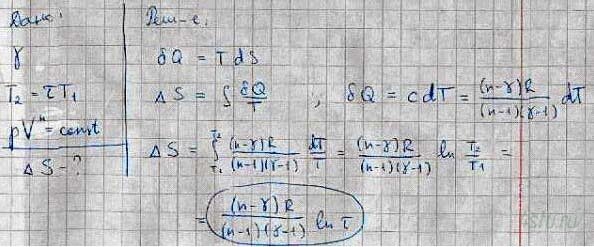 Дано:
γ
T₂ = τT₁
pVⁿ = const
ΔS - ?
Реш-е.
δQ = T dS
ΔS = ∫ δQ/T ; δQ = c dT = (n-γ)R/(n-1)(γ-1) dT
ΔS = ∫_{T₁}^{T₂} (n-γ)R/(n-1)(γ-1) dT/T = (n-γ)R/(n-1)(γ-1) ln T₂/T₁ =
= (n-γ)R/(n-1)(γ-1) ln τ